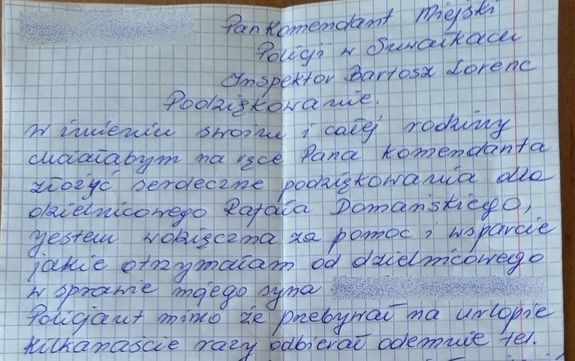 Pan Komendant Miejski
Policji w Suwałkach
Inspektor Bartosz Lorenc
Podziękowanie.
w imieniu swoim i całej rodziny
chciałabym na ręce Pana Komendanta
złożyć serdeczne podziękowania dla
dzielnicowego Rafała Domańskiego,
jestem wdzięczna za pomoc i wsparcie
jakie otrzymałam od dzielnicowego
w sprawie mojego syna
Policjant mimo że przebywał na urlopie
kilkanaście razy odbierał odemnie tel.